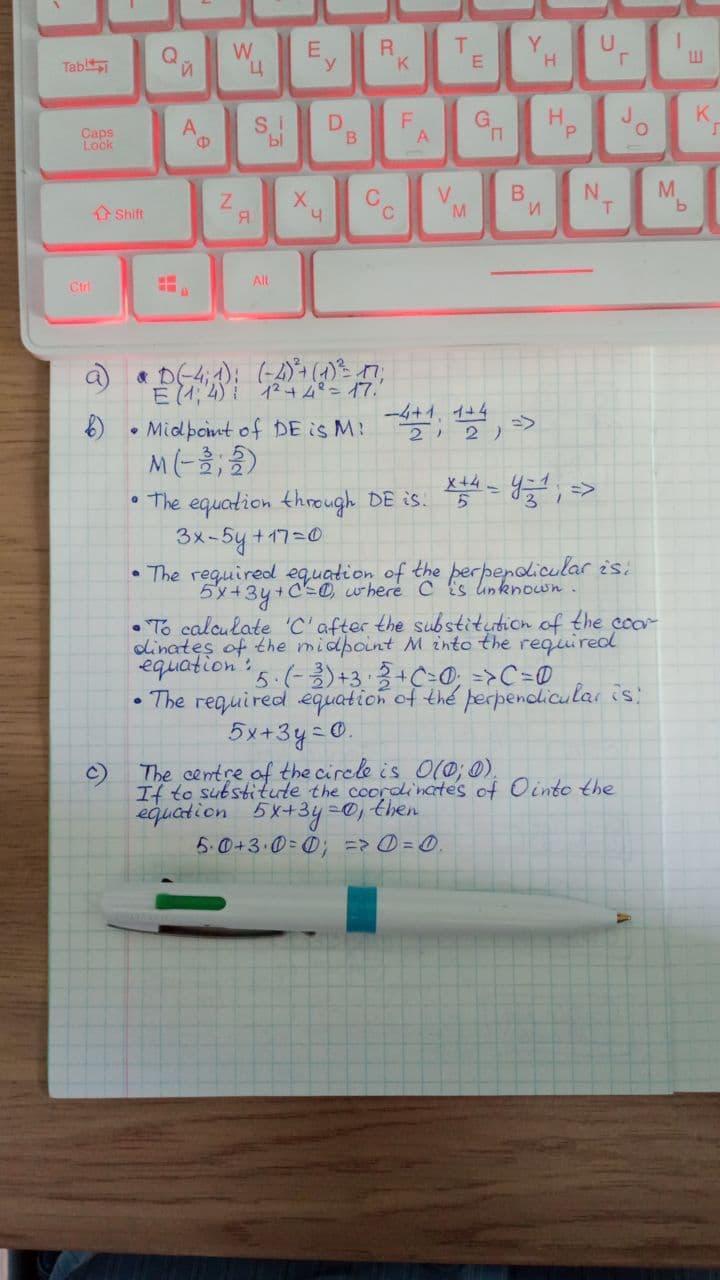 Tab Q Й W Ц E У R К T Е Y Н U Г I Ш
Caps Lock A Ф S Ы І D В F А G П H Р J О K Л
Shift Z Я X Ч C С V М B И N Т M Ь
Ctrl Alt
a) • D(-4;1); (-4)²+(1)²=17;
E(1;4); 1²+4²=17.
b) • Midpoint of DE is M: (-4+1)/2; (1+4)/2, =>
M(-3/2; 5/2)
• The equation through DE is: (x+4)/5 = (y-1)/3; =>
3x-5y+17=0
• The required equation of the perpendicular is:
5x+3y+C=0, where C is unknown.
• To calculate 'C' after the substitution of the coor-
dinates of the midpoint M into the required
equation:
5·(-3/2)+3·5/2+C=0; =>C=0
• The required equation of the perpendicular is:
5x+3y=0.
c) The centre of the circle is O(0;0).
If to substitute the coordinates of O into the
equation 5x+3y=0, then
5·0+3·0=0; => 0=0.